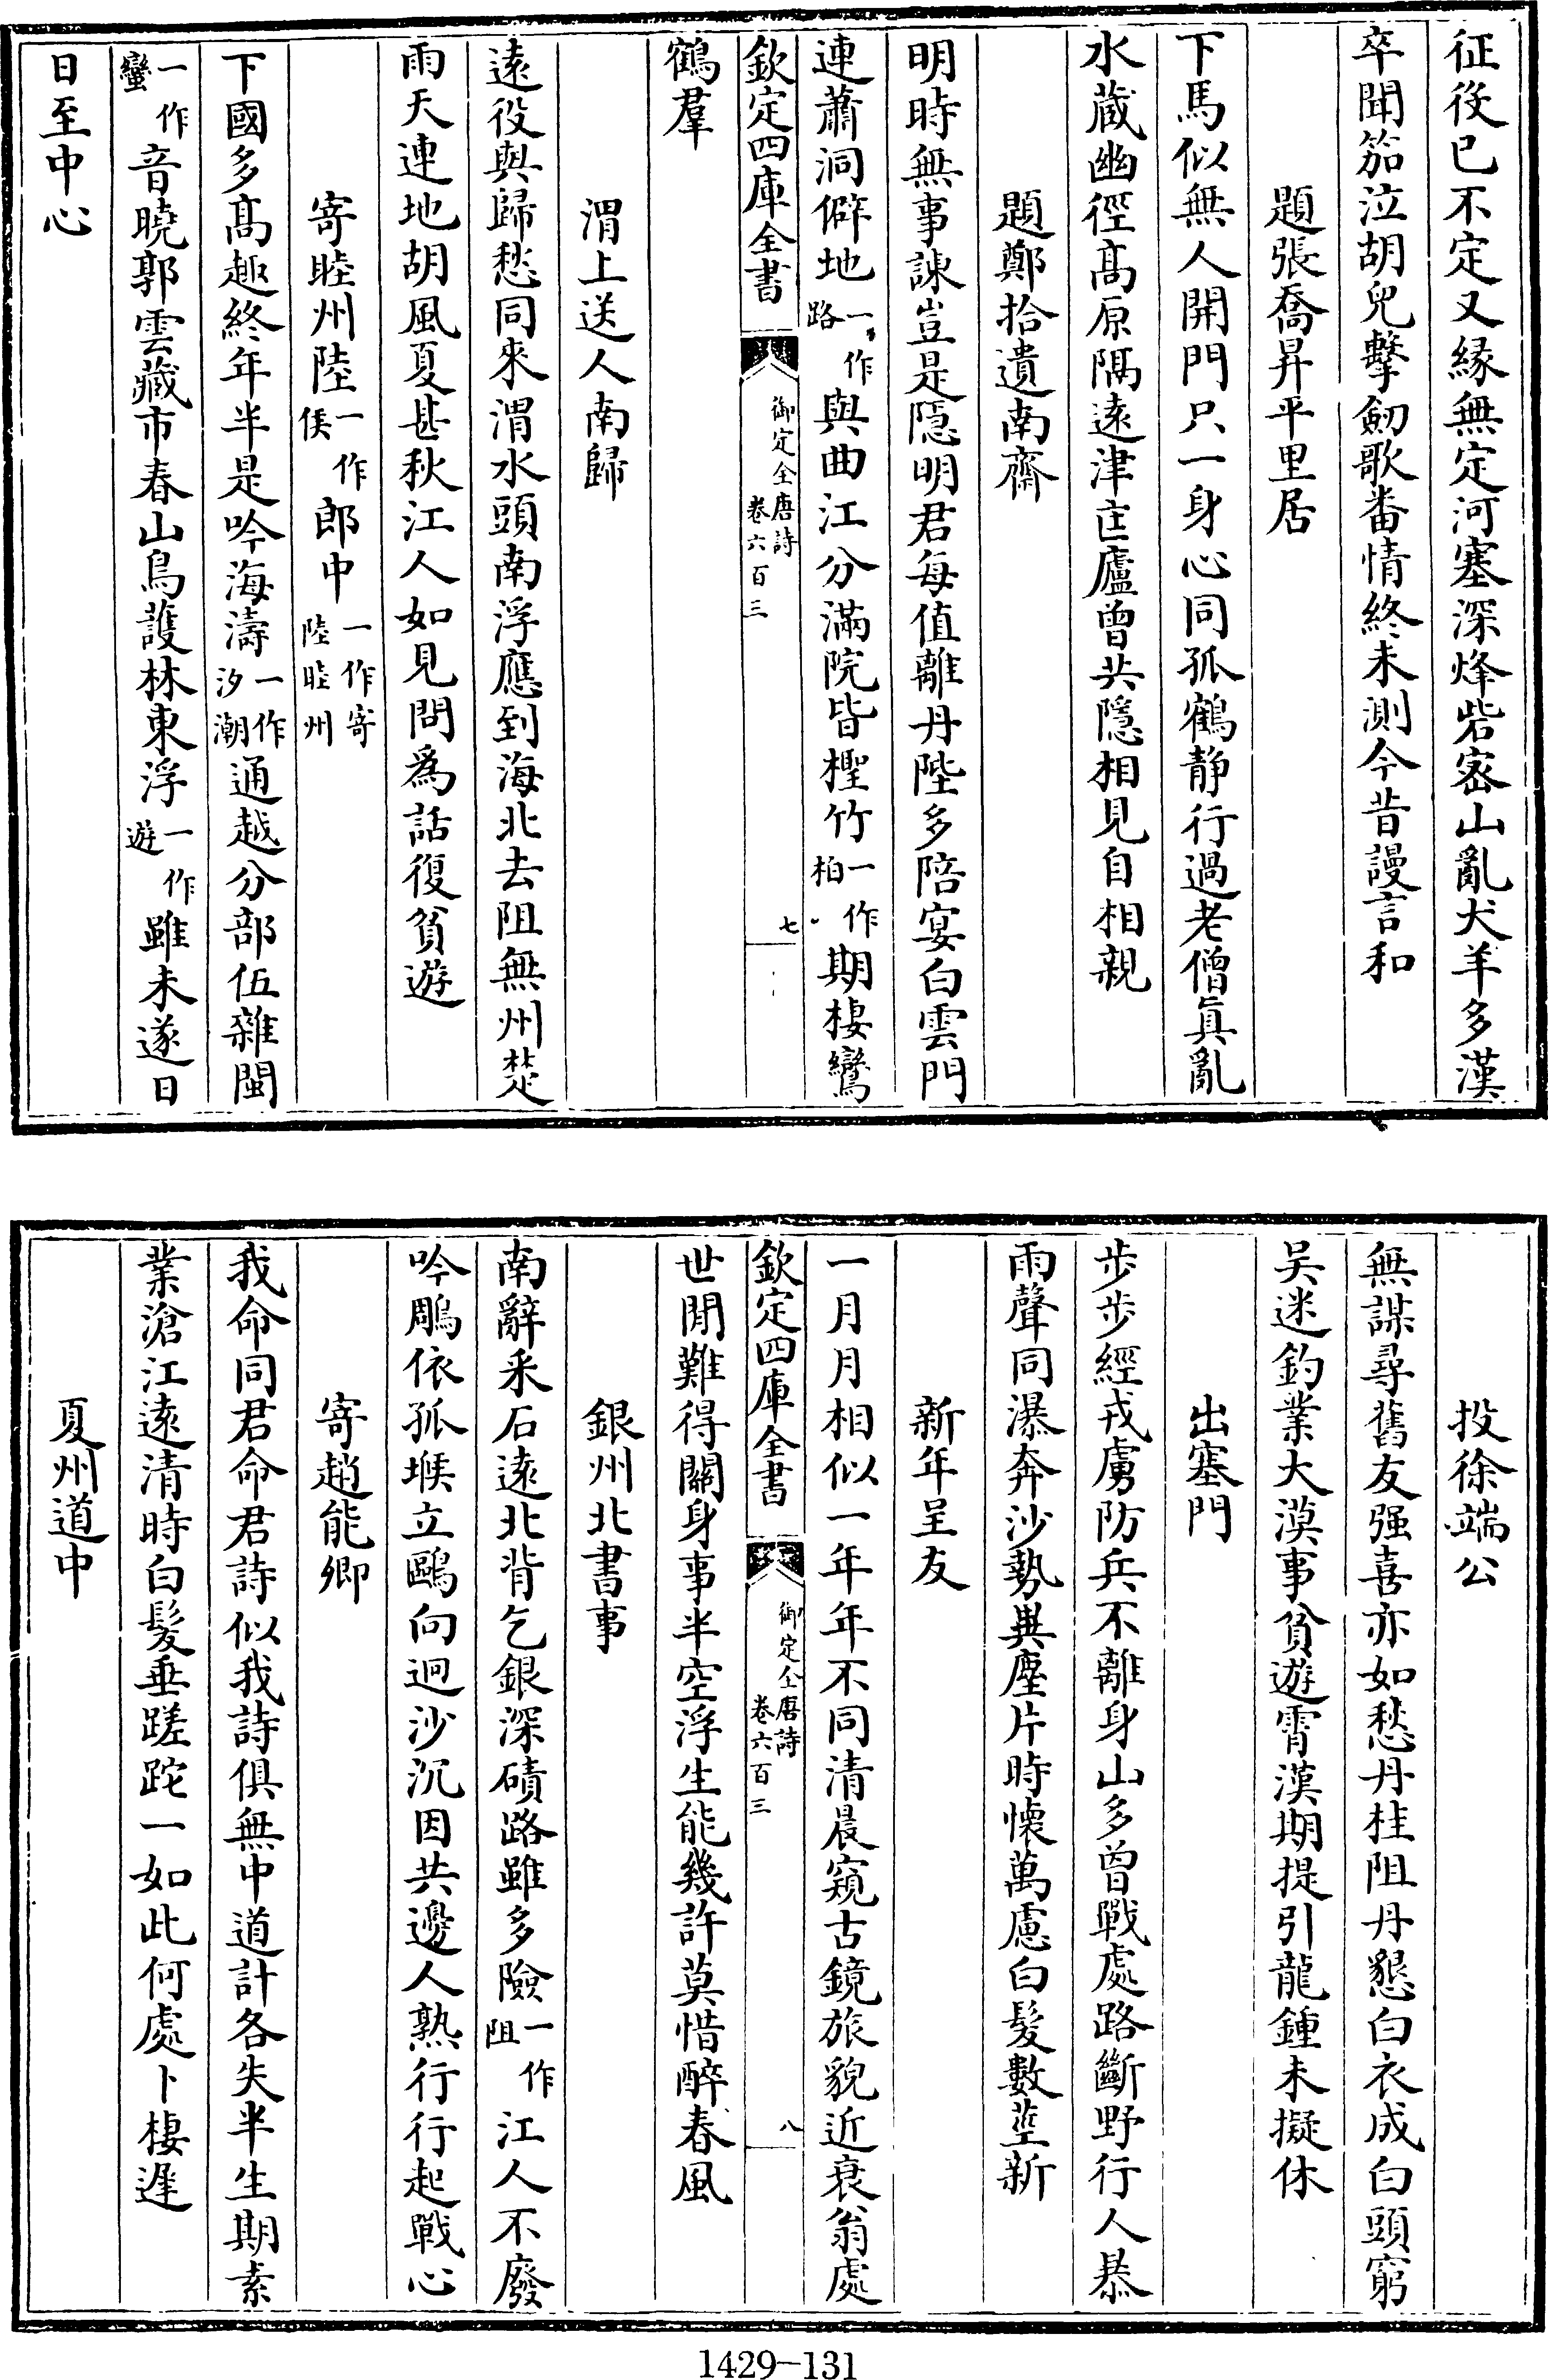 征役已不定又緣無定河塞深烽砦宻山亂犬羊多漢
卒聞笳泣胡兒擊劒歌畨情終未測今昔謾言和
題張喬昇平里居
下馬似無人開門只一身心同孤鶴静行過老僧真亂
水藏幽徑髙原隔遠津匡廬曾共隱相見自相親
題鄭拾遺南齋
明時無事諌豈是隱明君每值離丹陛多陪宴白雲門
連蕭洞僻地一作路與曲江分滿院皆檉竹一作柏期棲鸞
欽定四庫全書
御定全唐詩
卷六百三
七
鶴羣
渭上送人南歸
遠役與歸愁同來渭水頭南浮應到海北去阻無州楚
雨天連地胡風夏甚秋江人如見問為話復貧遊
寄睦州陸一作侯郎中一作寄陸睦州
下國多髙趣終年半是吟海濤一作汐潮通越分部伍雜閩
一作蠻音曉郭雲藏市春山鳥護林東浮一作遊雖未遂日
日至中心
投徐端公
無謀尋舊友强喜亦如愁丹桂阻丹懇白衣成白頭窮
吴迷釣業大漠事貧遊霄漢期提引龍鍾未擬休
出塞門
步步經戎虜防兵不離身山多曾戰處路斷野行人暴
雨聲同瀑奔沙勢與塵片時懷萬慮白髮數莖新
新年呈友
一月月相似一年年不同清晨窺古鏡旅貌近衰翁處
欽定四庫全書
御定全唐詩
卷六百三
八
世閒難得關身事半空浮生能幾許莫惜醉春風
銀州北書事
南辭采石遠北背乞銀深磧路雖多險一作阻江人不廢
吟鵰依孤堠立鷗向迥沙沉因共邊人熟行行起戰心
寄趙能卿
我命同君命君詩似我詩俱無中道計各失半生期素
業滄江遠清時白髮垂蹉跎一如此何處卜棲遲
夏州道中
1429-131